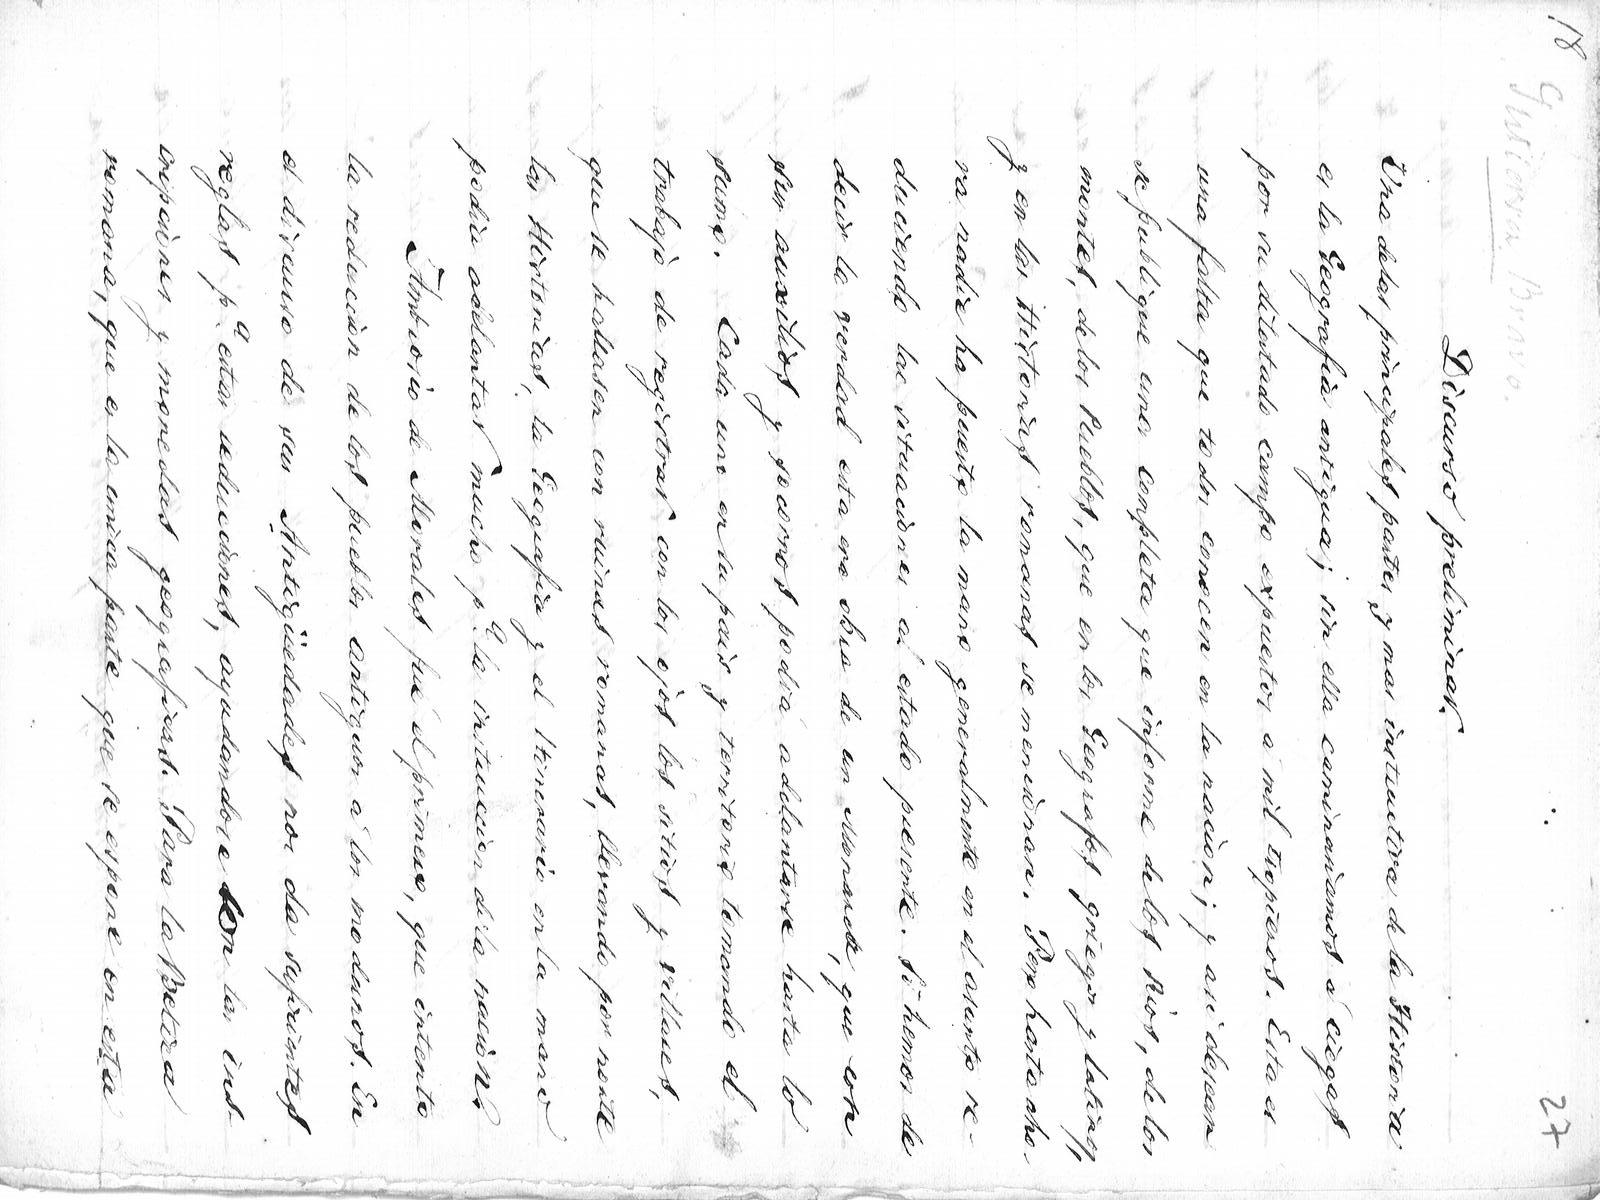 18
27
Gutierrez Bravo.
Discurso preliminar.
Una delas principales partes y mas instructiva de la Historia
es la Geografia antigua; sin ella caminamos á ciegas
por su dilatado campo expuestos á mil tropiesos. Esta es
una falta que todos conocen en la nacion; y asi desean
se publique una completa que informe delos Rios, delos
montes, delos Pueblos, que en los Geografos griegos y latinos,
y en las Historias romanas se mencionan. Pero hasta aho-
ra nadie ha puesto la mano generalmente en el asunto re-
duciendo las situaciones al estado presente. Si hemos de
decir la verdad esta era obra de un Monarca, que con
sus auxilios y socorros podia adelantarse hasta lo
sumo. Cada uno en su pais y territorio tomando el
trabajo de registrar con los ojos los sitios y villas,
que se hallasen con ruinas romanas, llevando por norte
las Historias, la Geografia y el Itinerario en la mano
podia adelantar mucho p.ª la instruccion dela nacion.
Ambrosio de Morales fué el primero, que intentó
la reduccion de los pueblos antiguos á los modernos. En
el discurso de sus Antigüedades nos da suficientes
reglas p.ª estas reducciones, ayudandose con las ins-
cripciones y monedas geograficas. Para la Betica
romana, que es la unica parte que se expone en esta